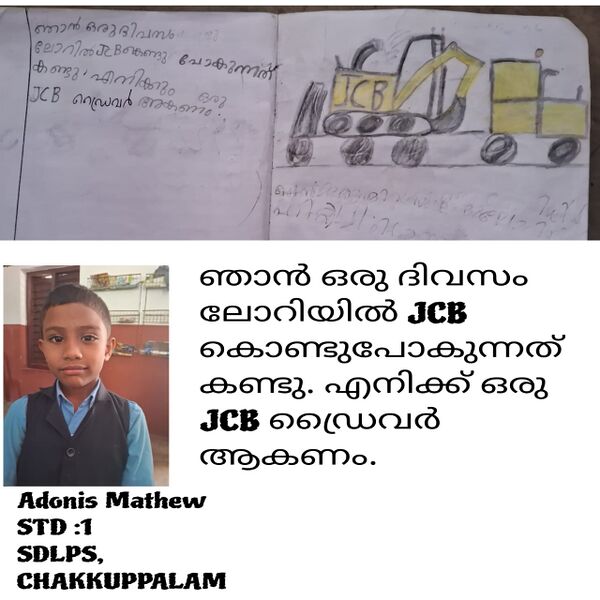 ഞാൻ ഒരു ദിവസം
ലോറിൽ JCB കെണ്ടു പോകുന്നത്
കണ്ടു എനിക്കും ഒരു
JCB ഡ്രൈവർ ആകണം.
JCB
ഞാൻ ഒരു ദിവസം
ലോറിയിൽ JCB
കൊണ്ടുപോകുന്നത്
കണ്ടു. എനിക്ക് ഒരു
JCB ഡ്രൈവർ
ആകണം.
Adonis Mathew
STD :1
SDLPS,
CHAKKUPPALAM